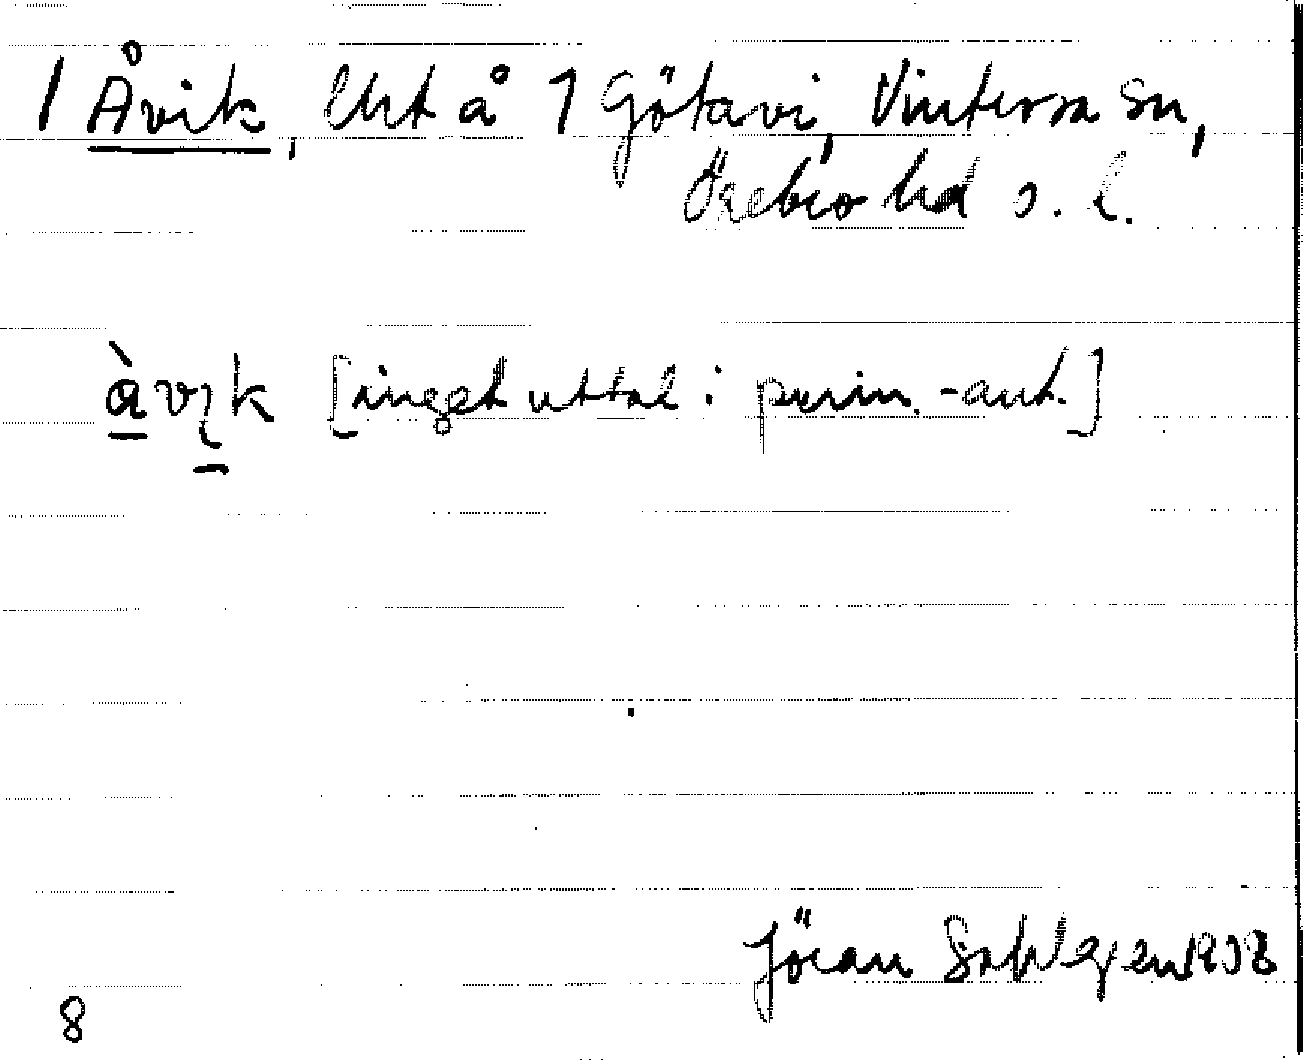 1 Åvik, lht å 1 Götavi, Vintrosa sn,
Örebro hd ö. l.
àvi̠k [inget uttal i prim.-ant.]
Jöran Sahlgren 1938
8